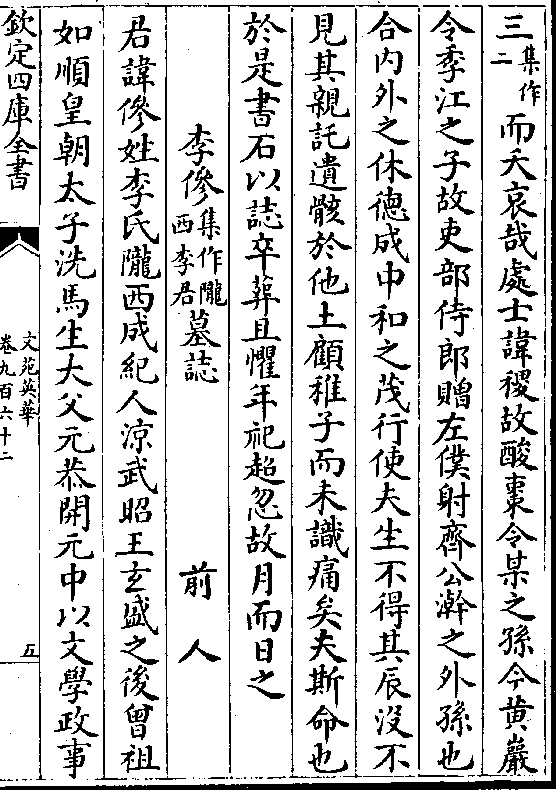 三集作二而夭哀哉處士諱稷故酸棗令某之孫今黄巖
令季江之子故吏部侍郎贈左僕射齊公澣之外孫也
合内外之休德成中和之茂行使夫生不得其辰沒不
見其親託遺骸於他土顧稚子而未識痛矣夫斯命也
於是書石以誌卒葬且懼年祀超忽故月而日之
李㑺集作隴西李君墓誌 前人
君諱㑺姓李氏隴西成紀人涼武昭王玄盛之後曾祖
如順皇朝太子洗馬生大父元恭開元中以文學政事
欽定四庫全書
文苑英華
卷九百六十二
五